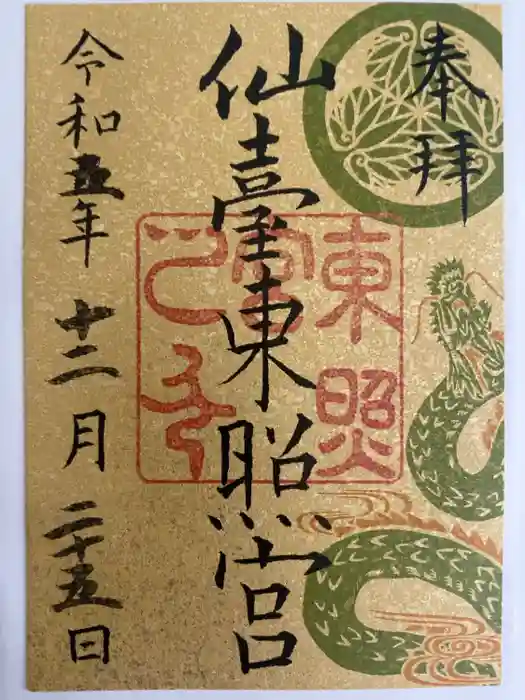 奉拝
仙臺東照宮
東照
宮
令和五年 十二月 二十五日